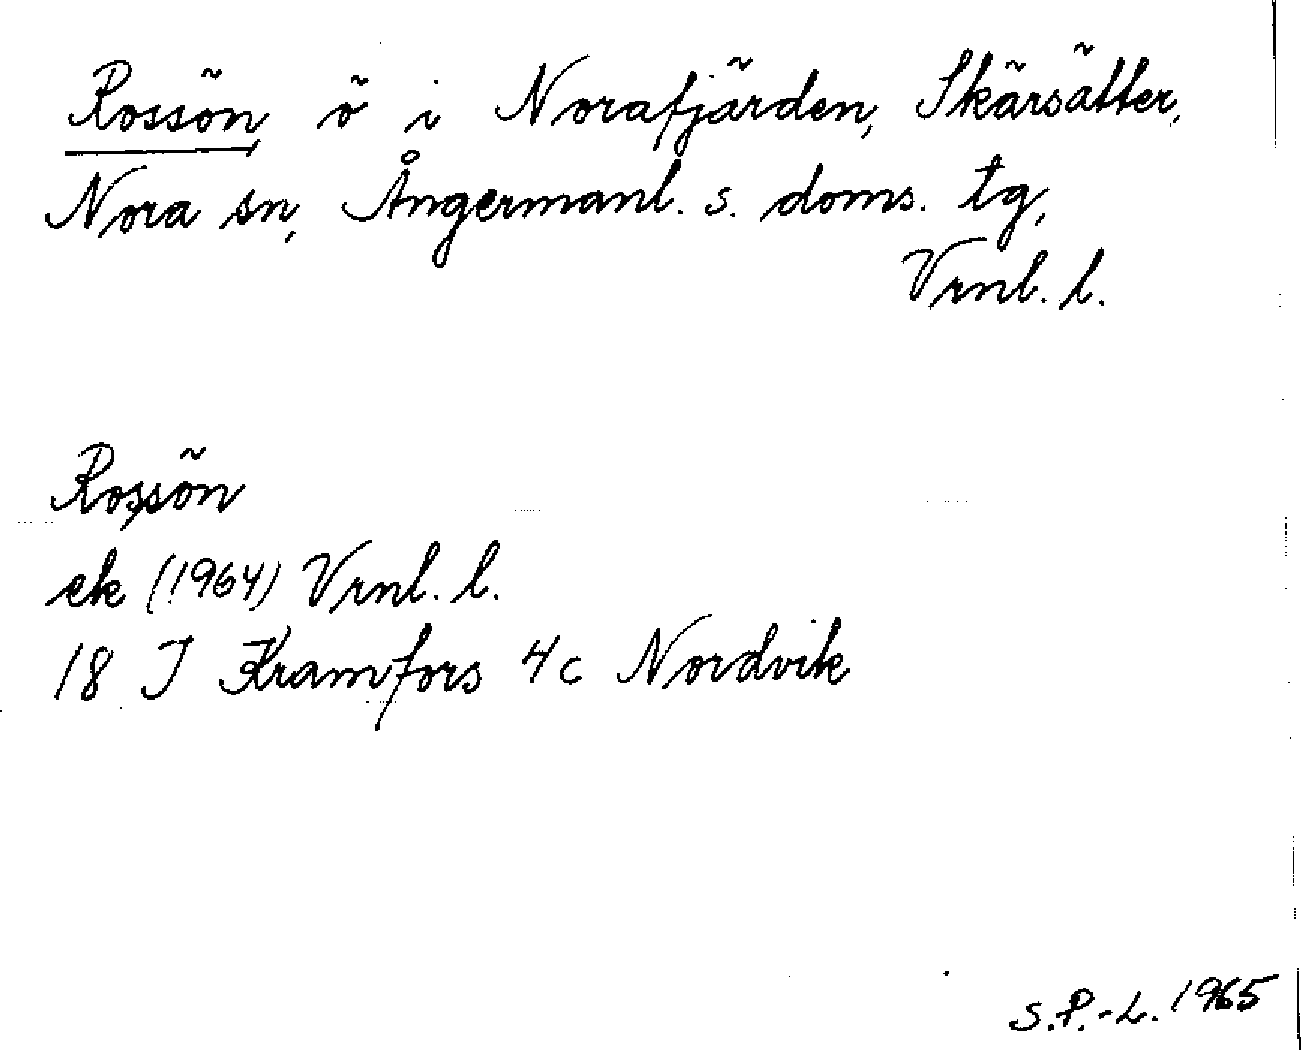 Rossön, ö i Norafjärden, Skärsätter,
Nora sn, Ångermanl. s. doms. tg,
Vrnl. l.
Rossön
ek (1964) Vrnl. l.
18 J Kramfors 4c Nordvik
S.P.-L. 1965